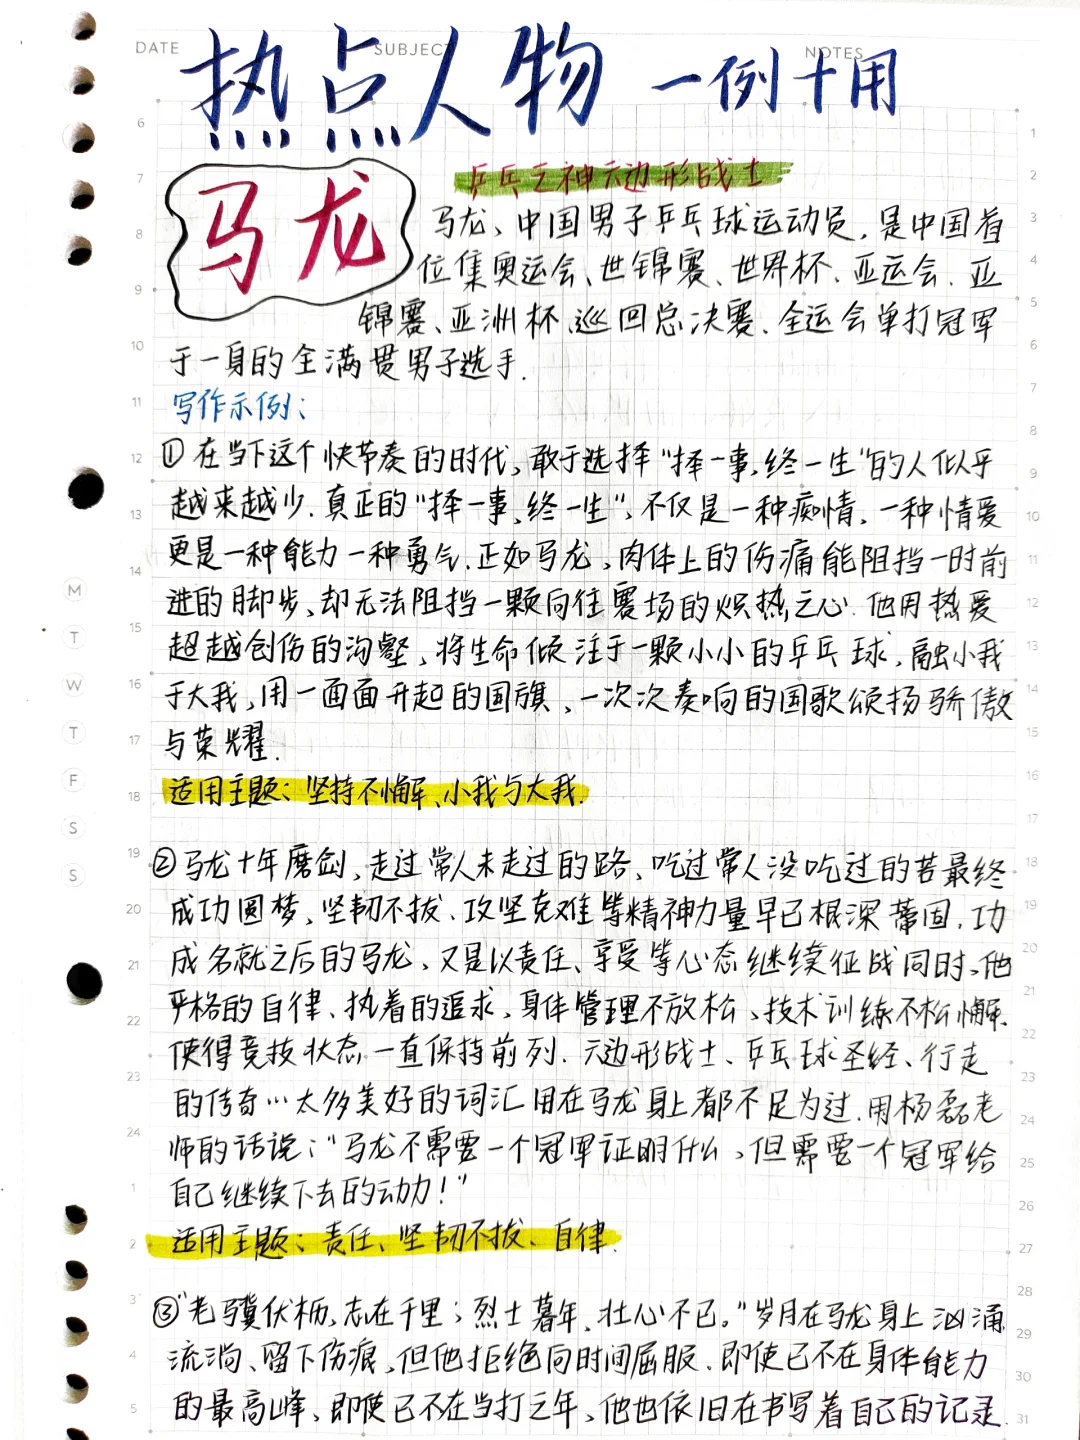 DATE SUBJECT NOTES
热点人物 一例十用
马龙
乒乓之神六边形战士
马龙、中国男子乒乓球运动员,是中国首
位集奥运会、世锦赛、世界杯、亚运会、亚
锦赛、亚洲杯、巡回总决赛、全运会单打冠军
于一身的全满贯男子选手.
写作示例:
①在当下这个快节奏的时代,敢于选择“择一事,终一生”的人似乎
越来越少.真正的“择一事,终一生”,不仅是一种痴情,一种情爱
更是一种能力一种勇气.正如马龙,肉体上的伤痛能阻挡一时前
进的脚步,却无法阻挡一颗向往赛场的炽热之心.他用热爱
超越创伤的沟壑,将生命倾注于一颗小小的乒乓球,融小我
于大我,用一面面升起的国旗,一次次奏响的国歌颂扬骄傲
与荣耀.
适用主题:坚持不懈、小我与大我.
②马龙十年磨剑,走过常人未走过的路、吃过常人没吃过的苦最终
成功圆梦,坚韧不拔、攻坚克难等精神力量早已根深蒂固.功
成名就之后的马龙,又是以责任、享受等心态继续征战同时,他
严格的自律、执着的追求,身体管理不放松、技术训练不松懈.
使得竞技状态一直保持前列.六边形战士、乒乓球圣经、行走
的传奇…太多美好的词汇用在马龙身上都不足为过.用杨磊老
师的话说:“马龙不需要一个冠军证明什么,但需要一个冠军给
自己继续下去的动力!”
适用主题:责任、坚韧不拔、自律.
③“老骥伏枥,志在千里;烈士暮年,壮心不已。”岁月在马龙身上汹涌
流淌、留下伤痕,但他拒绝向时间屈服.即使已不在身体能力
的最高峰,即使已不在当打之年,他也依旧在书写着自己的记录.
6
7
8
9
10
11
12
13
14
15
16
17
18
19
20
21
22
23
24
1
2
3
4
5
M
T
W
T
F
S
S
1
2
3
4
5
6
7
8
9
10
11
12
13
14
15
16
17
18
19
20
21
22
23
24
25
26
27
28
29
30
31